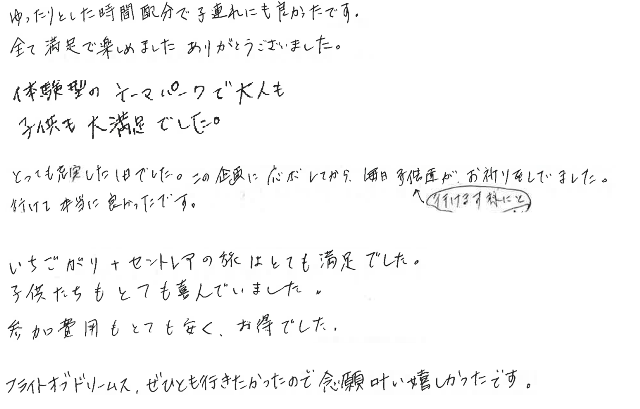 ゆったりとした時間配分で子連れにも良かったです。
全て満足で楽しめました ありがとうございました。
体験型のテーマパークで大人も
子供も大満足でした。
とっても充実した1日でした。この企画に応ボしてから、毎日子供達が、お祈りをしていました。
行けます様にと
行けて本当に良かったです。
いちごがり+セントレアの旅はとても満足でした。
子供たちもとても喜んでいました。
参加費用もとても安く、お得でした。
フライトオブドリームス、ぜひとも行きたかったので念願叶い嬉しかったです。